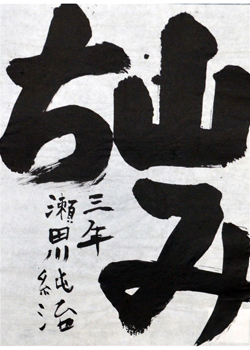 山み
ち
三年
瀬田川純治